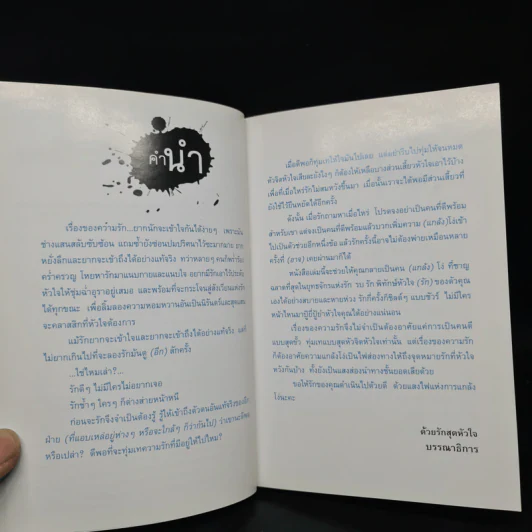 คำนำ
เรื่องของความรัก...ยากนักจะเข้าใจกันได้ง่ายๆ เพราะมัน
ช่างแสนสลับซับซ้อน แถมซ้ำยังซ่อนปมปริศนาไว้ซะมากมาย ยาก
หยั่งลึกและยากจะเข้าถึงได้อย่างแท้จริง ทว่าหลายๆ คนก็พร่ำวิงวอน
คร่ำครวญ โหยหารักมาแนบกายและแนบใจ อยากมีรักเอาไว้ประดับ
หัวใจให้ชุ่มฉ่ำอุราอยู่เสมอ และพร้อมที่จะกระโจนสู่สังเวียนแห่งรัก
ได้ทุกขณะ เพื่อลิ้มลองความหอมหวานอันเป็นนิรันดร์และสุดแสน
จะคลาสสิกที่หัวใจต้องการ
แม้รักยากจะเข้าใจและยากจะเข้าถึงได้อย่างแท้จริง แต่ก็
ไม่ยากเกินไปที่จะลองรักมันดู (อีก) สักครั้ง
...ใช่ไหมเล่า?...
รักดีๆ ไม่มีใครไม่อยากเจอ
รักช้ำๆ ใครๆ ก็ต่างส่ายหน้าหนี
ก่อนจะรักจึงจำเป็นต้องรู้ รู้ให้เข้าถึงตัวตนอันแท้จริงของอีก
ฝ่าย (ที่แอบเหล่อยู่ห่างๆ หรือจะใกล้ๆ ก็ว่ากันไป) ว่าเขาน่ะดีพอ
หรือเปล่า? ดีพอที่จะทุ่มเทความรักที่มีอยู่ให้ไปไหม?
เมื่อดีพอก็ทุ่มเทให้ใจมันไปเลย แต่อย่ารีบไปทุ่มให้จนหมด
หัวจิตหัวใจเสียล่ะ ยังไงๆ ก็ต้องให้เหลือบางส่วนเสี้ยวหัวใจเอาไว้บ้าง
เผื่อที่เมื่อไหร่รักไม่สมหวังขึ้นมา เมื่อนั้นเราจะได้พอมีส่วนเสี้ยวที่
ยังใช้ไว้ยืนหยัดได้อีกครั้ง
ดังนั้น เมื่อรักถามหาเมื่อไหร่ โปรดจงอย่าเป็นคนที่ดีพร้อม
สำหรับเขา แต่จงเป็นคนที่ดีพร้อมแล้วบวกเพิ่มความ (แกล้ง) โง่เข้า
ไปเป็นตัวช่วยอีกหนึ่งข้อ แล้วรักครั้งนี้อาจไม่ต้องพ่ายเหมือนหลาย
ครั้งที่ (อาจ) เคยผ่านมาก็ได้
หนังสือเล่มนี้จะช่วยให้คุณกลายเป็นคน (แกล้ง) โง่ ที่ชาญ
ฉลาดที่สุดในยุทธจักรแห่งรัก รบ รัก พิทักษ์หัวใจ (รัก) ของตัวคุณ
เองได้อย่างสบายและพ่ายห่วง รักกี่ครั้งก็ชิลด์ๆ แบบชัวร์ ไม่มีใคร
หน้าไหนมาบู้ยี้บู้ยำหัวใจคุณได้อย่างแน่นอน
เรื่องของความรักจึงไม่จำเป็นต้องอาศัยแค่การเป็นคนดี
แบบสุดขั้ว ทุ่มเทแบบสุดหัวจิตหัวใจเท่านั้น แต่เรื่องของความรัก
ก็ต้องอาศัยความแกล้งโง่เป็นไฟส่องทางให้ถึงจุดหมายรักที่หัวใจ
หวังกันบ้าง ทั้งยังเป็นแสงส่องนำทางชั้นยอดเสียด้วย
ขอให้รักของคุณดำเนินไปด้วยดี ด้วยแสงไฟแห่งการแกล้ง
โง่นะคะ
ด้วยรักสุดหัวใจ
บรรณาธิการ